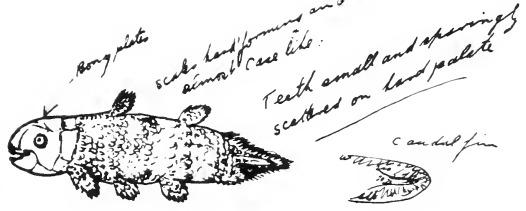 Bony plates
scales hard forming an
almost case like.
Teeth small and sparingly
scattered on hard palate
Caudal fin